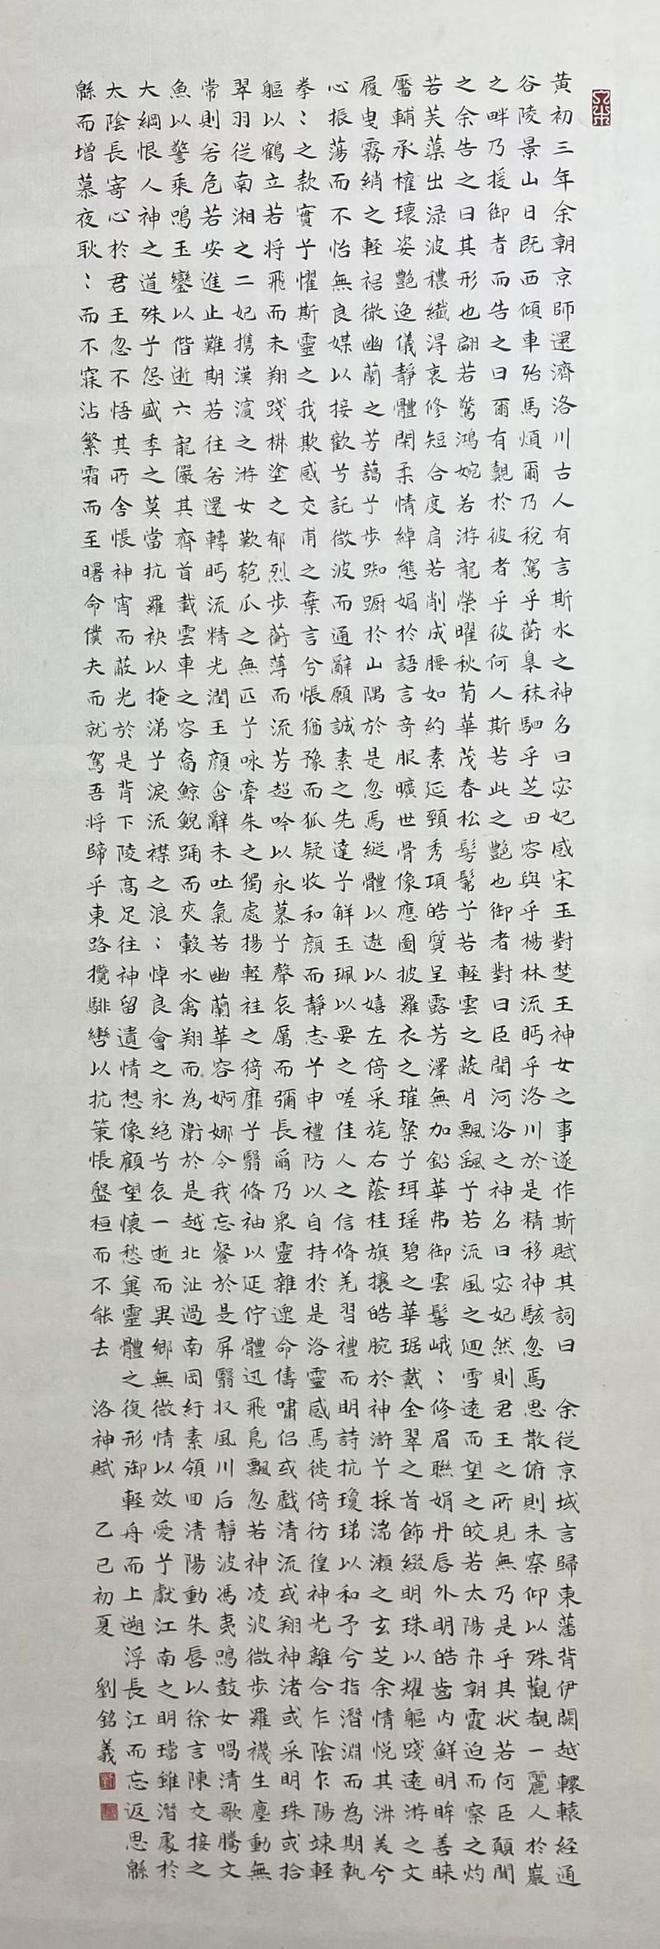 黃初三年余朝京師還濟洛川古人有言斯水之神名曰宓妃感宋玉對楚王神女之事遂作斯賦其詞曰 余從京域言歸東藩背伊闕越轘轅經通
谷陵景山日既西傾車殆馬煩爾乃稅駕乎蘅皋秣駟乎芝田容與乎楊林流眄乎洛川於是精移神駭忽焉思散俯則未察仰以殊觀覩一麗人於巖
之畔乃援御者而告之曰爾有覿於彼者乎彼何人斯若此之艷也御者對曰臣聞河洛之神名曰宓妃然則君王之所見無乃是乎其狀若何臣願聞
之余告之曰其形也翩若驚鴻婉若游龍榮曜秋菊華茂春松髣髴兮若輕雲之蔽月飄颻兮若流風之迴雪遠而望之皎若太陽升朝霞迫而察之灼
若芙蕖出淥波穠纖得衷修短合度肩若削成腰如約素延頸秀項皓質呈露芳澤無加鉛華弗御雲髻峨:修眉聯娟丹唇外明皓齒內鮮明眸善睞
靨輔承權瓌姿艷逸儀靜體閑柔情綽態媚於語言奇服曠世骨像應圖披羅衣之璀粲兮珥瑤碧之華琚戴金翠之首飾綴明珠以耀軀踐遠游之文
履曳霧綃之輕裾微幽蘭之芳藹兮步踟躕於山隅於是忽焉縱體以遨以嬉左倚采旄右蔭桂旗攘皓腕於神滸兮採湍瀨之玄芝余情悅其淑美兮
心振蕩而不怡無良媒以接歡兮託微波而通辭願誠素之先達兮解玉珮以要之嗟佳人之信脩羌習禮而明詩抗瓊珶以和予兮指潛淵而為期執
拳:之款實兮懼斯靈之我欺感交甫之棄言兮悵猶豫而狐疑收和顏而靜志兮申禮防以自持於是洛靈感焉徙倚彷徨神光離合乍陰乍陽竦輕
軀以鶴立若將飛而未翔踐椒塗之郁烈步蘅薄而流芳超吟以永慕兮聲哀厲而彌長爾乃眾靈雜遝命儔嘯侶或戲清流或翔神渚或采明珠或拾
翠羽從南湘之二妃攜漢濱之游女歎匏瓜之無匹兮咏牽朱之獨處揚輕袿之猗靡兮翳脩袖以延佇體迅飛鳧飄忽若神凌波微步羅襪生塵動無
常則若危若安進止難期若往若還轉眄流精光潤玉顏含辭未吐氣若幽蘭華容婀娜令我忘餐於是屏翳收風川后靜波馮夷鳴鼓女喎清歌騰文
魚以警乘鳴玉鑾以偕逝六龍儼其齊首載雲車之容裔鯨鯢踊而夾轂水禽翔而為衛於是越北沚過南岡紆素領回清陽動朱唇以徐言陳交接之
大綱恨人神之道殊兮怨盛季之莫當抗羅袂以掩涕兮淚流襟之浪:悼良會之永絕兮哀一逝而異鄉無微情以效愛兮獻江南之明璫雖潛處於
太陰長寄心於君王忽不悟其所舍悵神宵而蔽光於是背下陵高足往神留遺情想像顧望懷愁冀靈體之復形御輕舟而上遡浮長江而忘返思緜
緜而增慕夜耿:而不寐沾繁霜而至曙命僕夫而就駕吾將歸乎東路攬騑轡以抗策悵盤桓而不能去 洛神賦 乙巳初夏 劉銘義